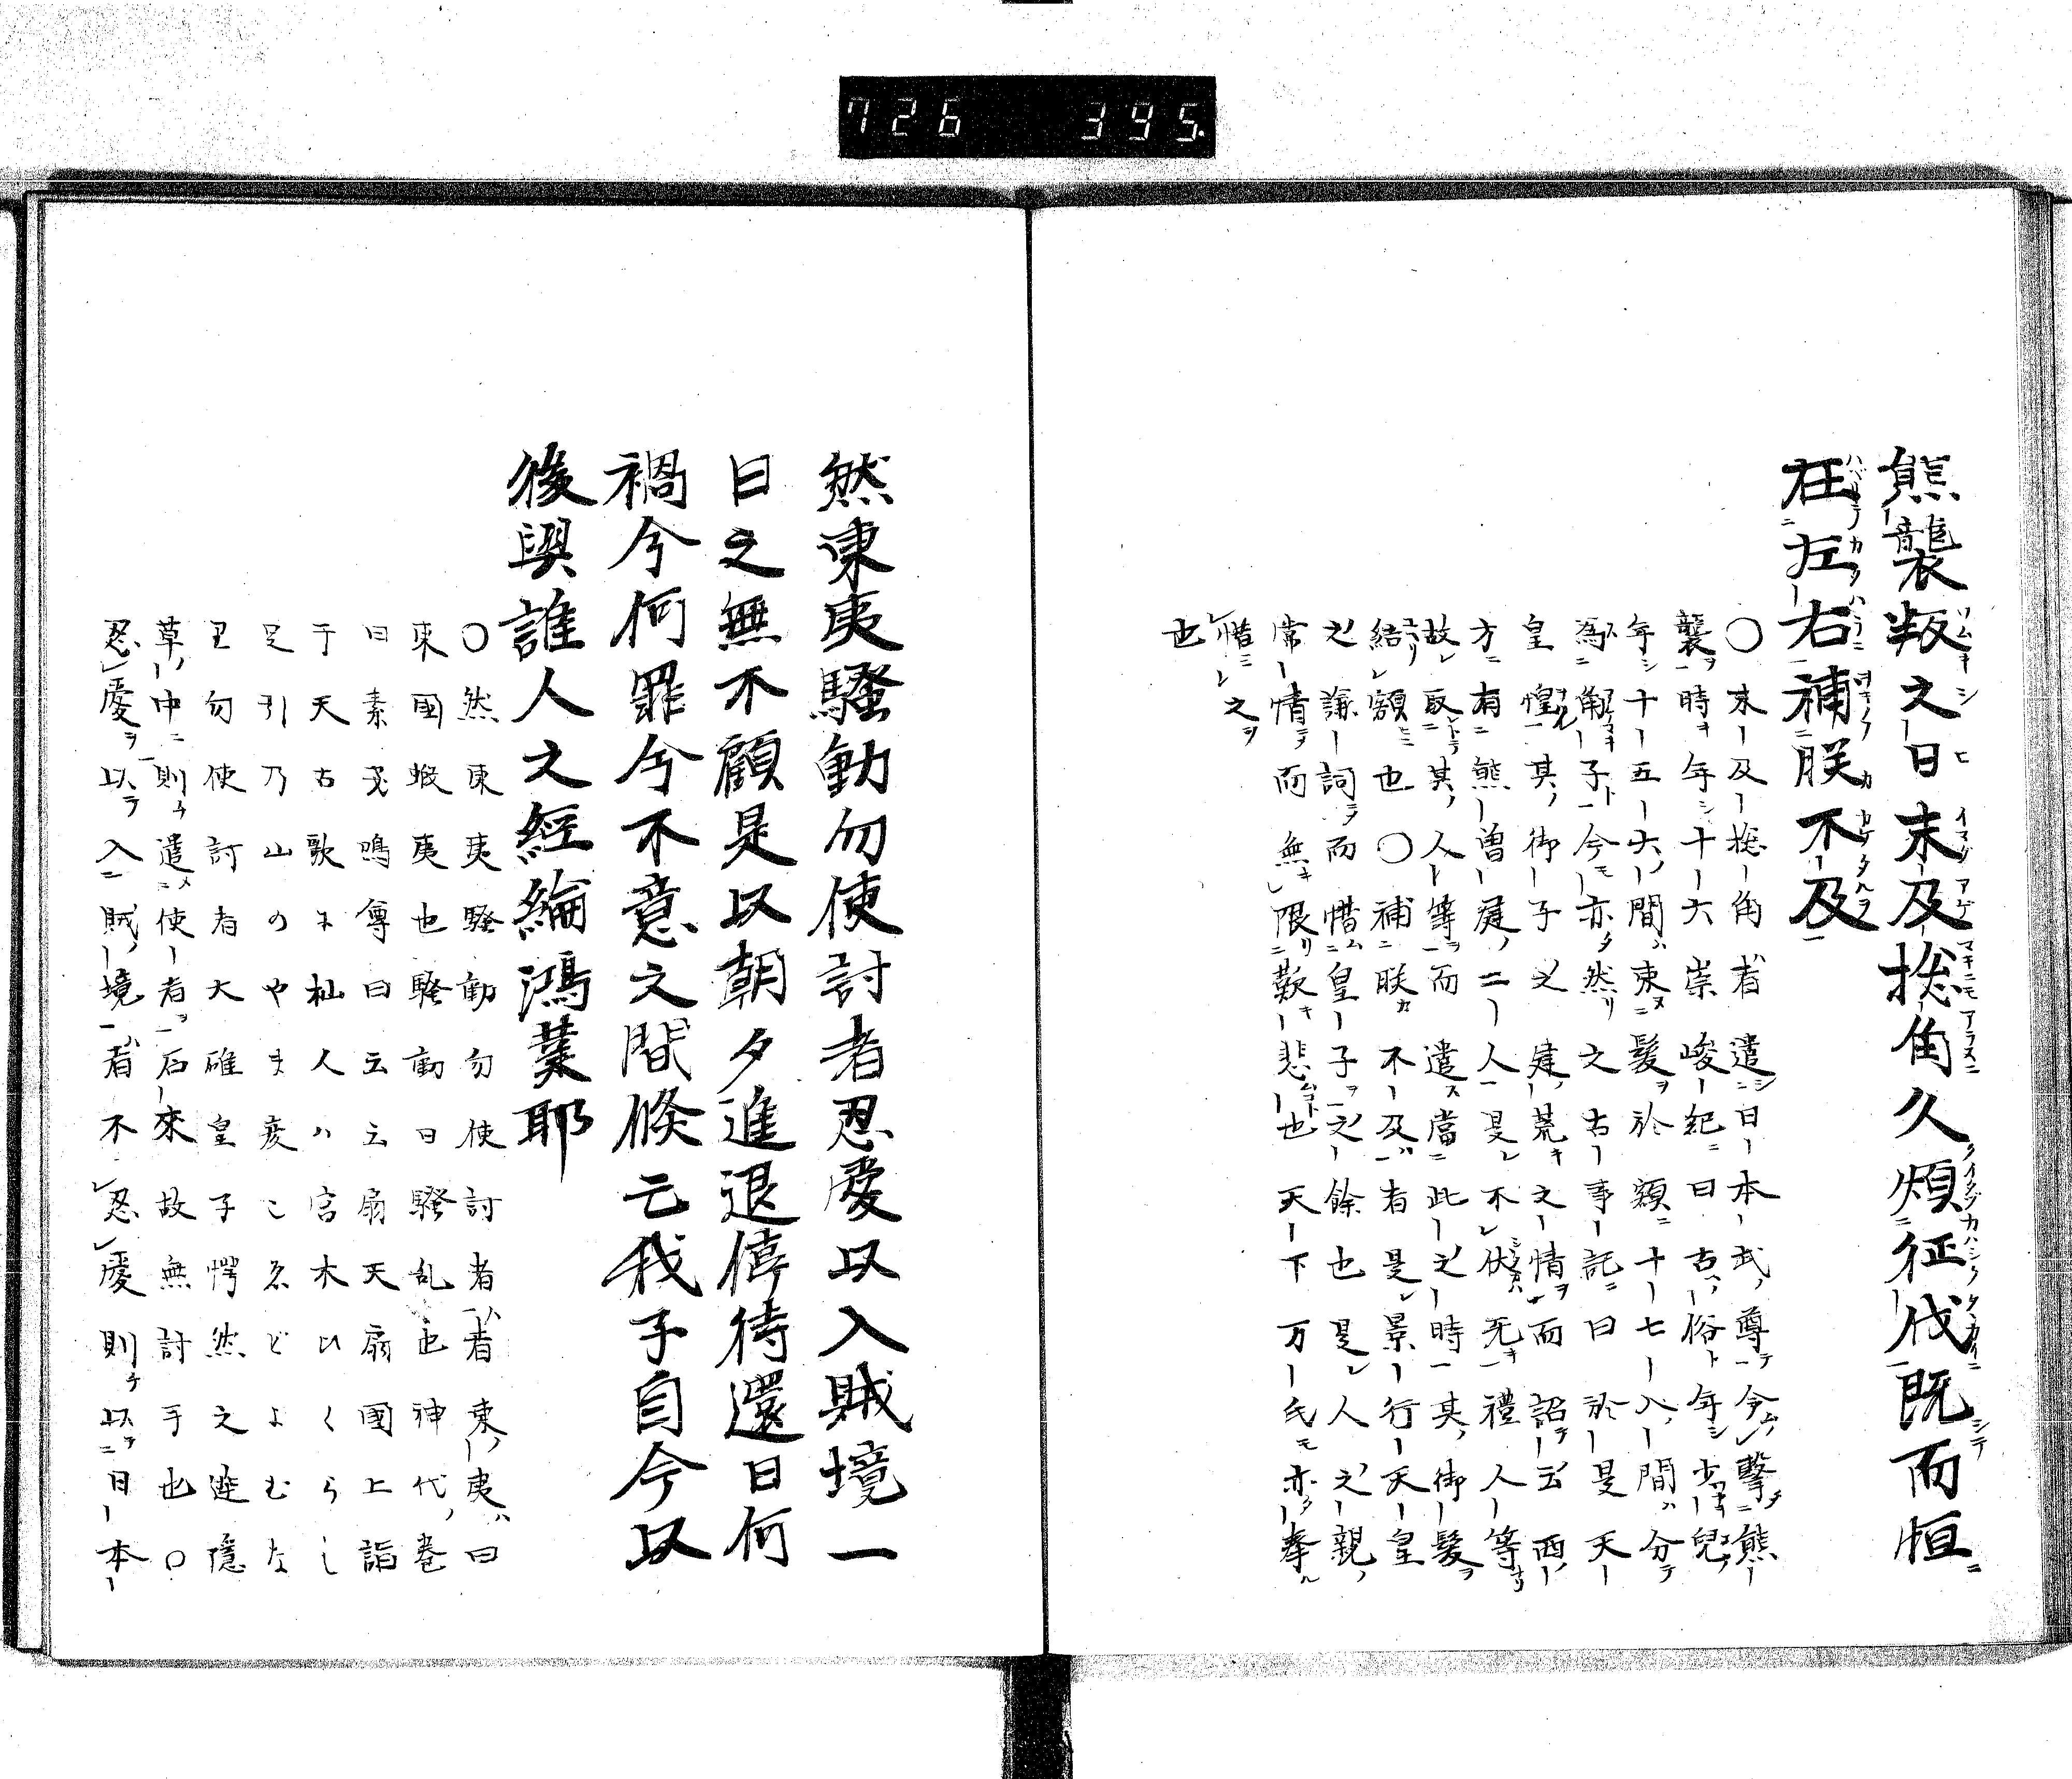 726 395.
熊襲叛之日未及揔角久煩征伐既而恒
在左右補朕不及
○末及揔角者遣日本武尊今擊熊
襲時年十六崇峻紀曰古俗年少兒
年十五六間束髮於額十七八間分
為角子今亦然之古事記曰於是天
皇惶其御子之建荒之情而詔云西
方有熊曽建二人是不伏无禮人等
故取其人等而遣當此之時其御髮
結額也○補朕不及者是景行天皇
之謙詞而惜皇子之餘也是人之親
常情而無限歎悲也天下万民亦
惜之
也
然東夷騷動勿使討者忍愛以入賊境一
日之無不顧是以朝夕進退停待還日何
禍兮何罪兮不意之間倏亡我子自今以
後與誰人之經綸鴻業耶
○然東夷騷動勿使討者者東夷曰
東國蝦夷也騷動曰騷乱也神代巻
曰素戔嗚尊曰云云扇天扇國上詣
于天古歌ニ杣人ハ宮木ひくらし
足引乃山のやま彦こゑどよむな
里勿使討者大碓皇子愕然之逃隱
草中則遣使者石來故無討手也○
忍愛以入賊境者不忍愛則以日本